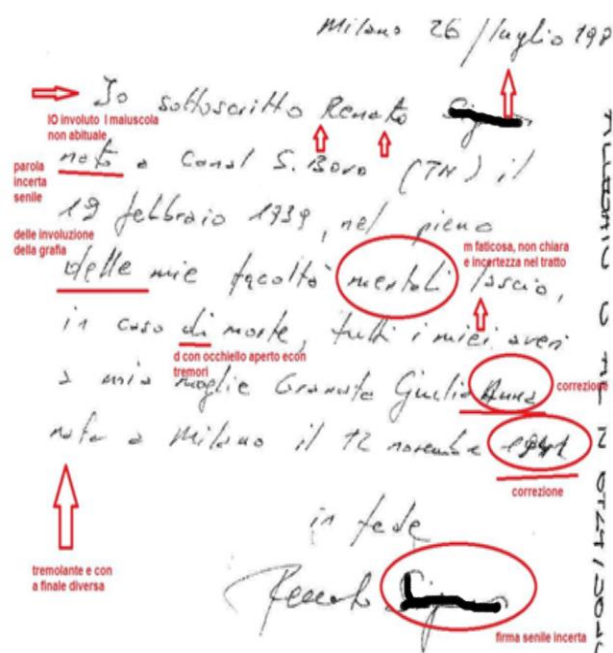 Milano 26 / luglio 198
Io sottoscritto Renato
IO involuto I maiuscola
non abituale
nato a Canal S. Bovo (TN) il
parola
incerta
senile
19 febbraio 1939, nel pieno
delle involuzione
della grafia
m faticosa, non chiara
e incertezza nel tratto
delle mie facoltà mentali lascio,
in caso di morte, tutti i miei averi
d con occhiello aperto econ
tremori
a mia moglie Granata Giulia Anna
correzione
nata a Milano il 12 novembre
correzione
in fede
tremolante e con
a finale diversa
Renato
firma senile incerta